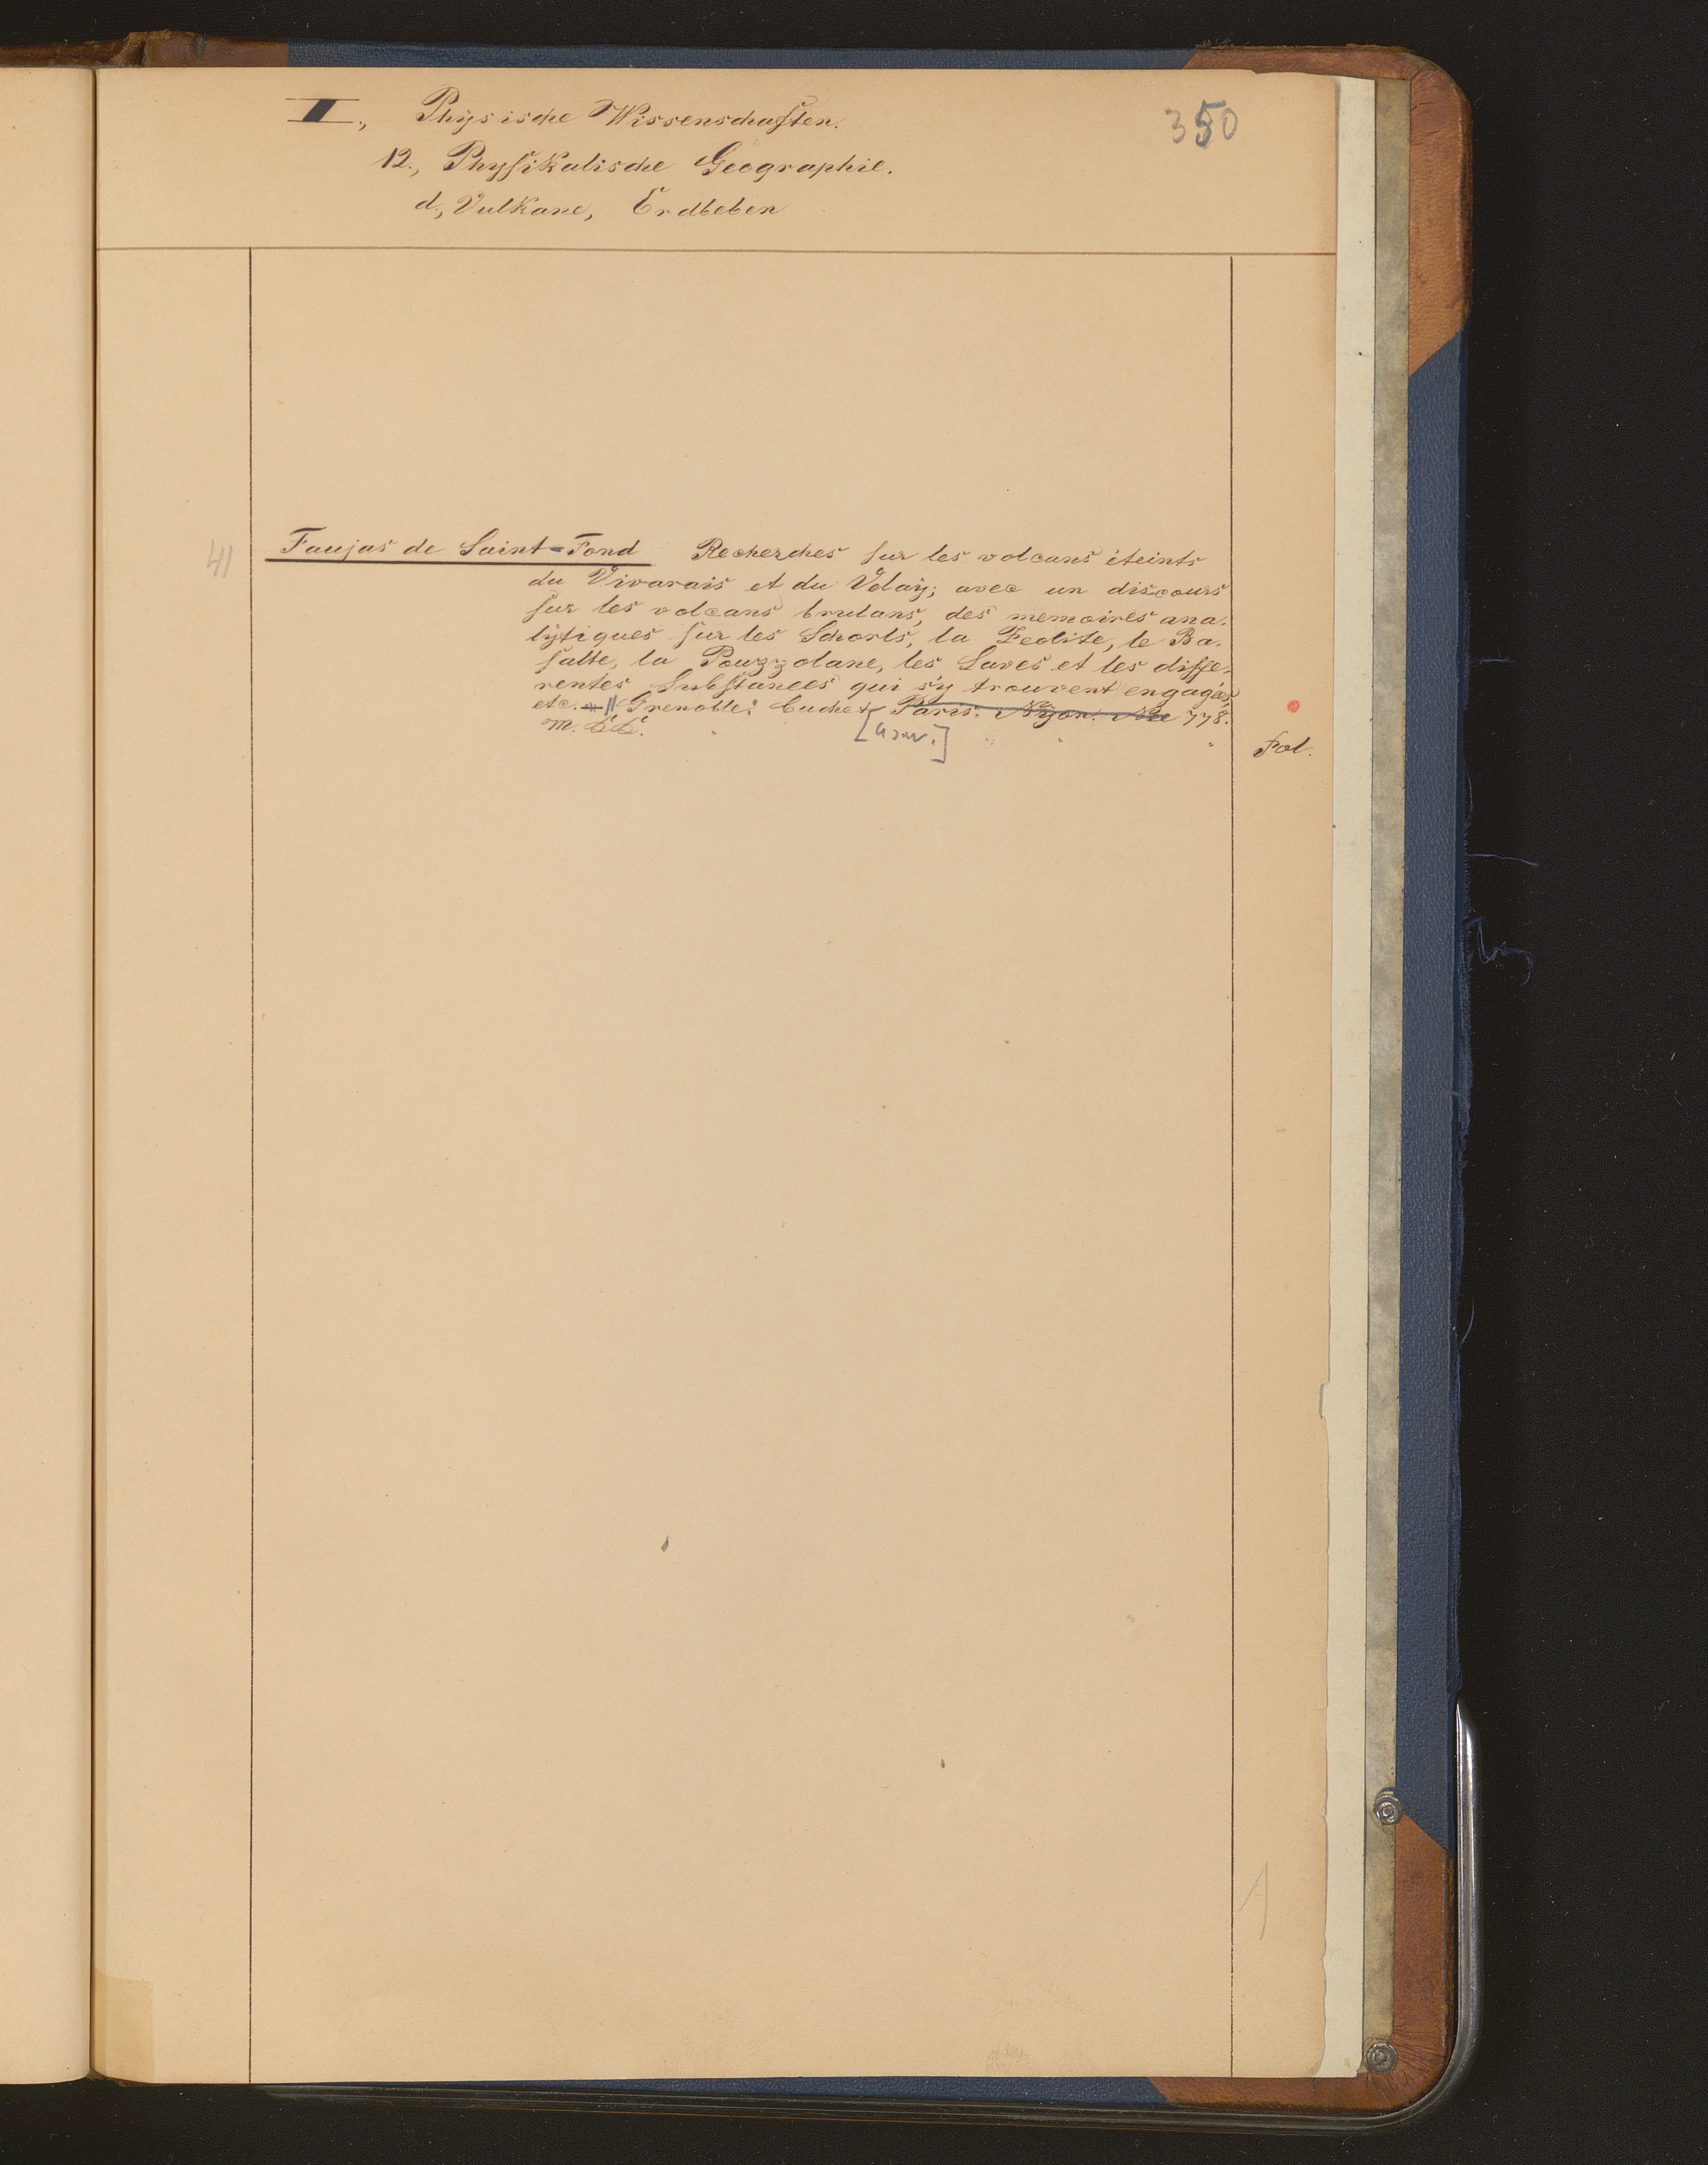 II., Physische Wissenschaften.
350
12., Physikalische Geographie.
d., Vulkane, Erdbeben
41
Faujas de Saint-Fond Recherches sur les volcans éteints
du Vivarais et du Velaÿ; avec un discours
sur les volcans brulans, des memoires ana-
lÿtiques sur les Schorls, la Zeolite, le Ba-
salte, la Pouzzolane, les Laves et les diffe-
rentes Substances qui s'y trouvent engagées,
etc. || Grenoble: Cuchet Paris. Nyon. Née 778.
m.
Fol.
A